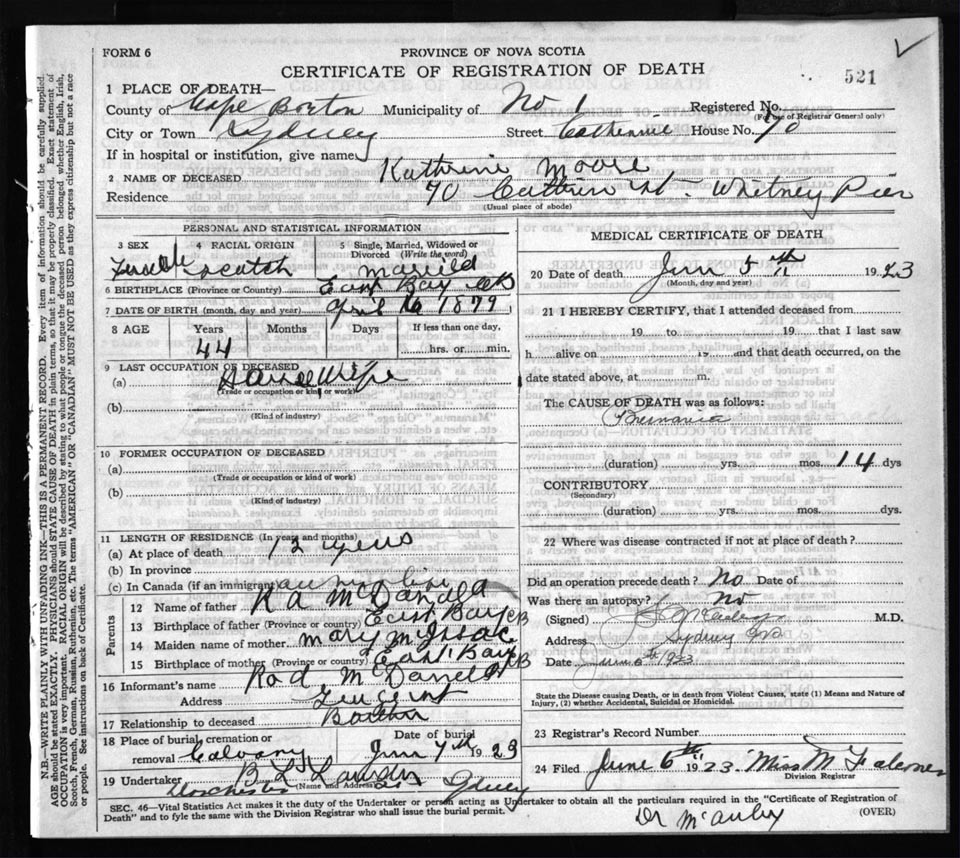 FORM 6
PROVINCE OF NOVA SCOTIA
CERTIFICATE OF REGISTRATION OF DEATH
521
1 PLACE OF DEATH—
County of Cape Breton Municipality of No 1 Registered No.
(For use of Registrar General only)
City or Town Sydney Street Catherine House No. 70
If in hospital or institution, give name
2 NAME OF DECEASED Kathrine Moore
Residence 70 Cathrin St. Whitney Pier
(Usual place of abode)
PERSONAL AND STATISTICAL INFORMATION
3 SEX Female
4 RACIAL ORIGIN Scotch
5 Single, Married, Widowed or Divorced (Write the word) Married
6 BIRTHPLACE (Province or Country) East Bay CB
7 DATE OF BIRTH (month, day and year) April 16 1879
8 AGE Years 44 Months Days If less than one day, hrs. or min.
9 LAST OCCUPATION OF DECEASED
(a) House Wife
(Trade or occupation or kind of work)
(b)
(Kind of industry)
10 FORMER OCCUPATION OF DECEASED
(a)
(Trade or occupation or kind of work)
(b)
(Kind of industry)
11 LENGTH OF RESIDENCE (In years and months)
(a) At place of death 12 years
(b) In province
(c) In Canada (if an immigrant) all
Parents
12 Name of father R A McDonald
13 Birthplace of father (Province or country) East Bay CB
14 Maiden name of mother Mary McIsaac
15 Birthplace of mother (Province or country) East Bay CB
16 Informant's name Rod McDonald
Address
17 Relationship to deceased
18 Place of burial, cremation or removal Calvary
Date of burial Jun 7th 1923
19 Undertaker
(Name and Address)
Dorchester St Sydney
MEDICAL CERTIFICATE OF DEATH
20 Date of death Jun 5th 1923
(Month, day and year)
21 I HEREBY CERTIFY, that I attended deceased from
19 to 19 that I last saw
h alive on 19 and that death occurred, on
date stated above, at m.
The CAUSE OF DEATH was as follows:
(duration) yrs. mos. 14 dys
CONTRIBUTORY
(Secondary)
(duration) yrs. mos. dys.
22 Where was disease contracted if not at place of death?
Did an operation precede death? No Date of
Was there an autopsy? No
(Signed) M.D.
Address Sydney
Date June 6th 1923
State the Disease causing Death, or in death from Violent Causes, state (1) Means and Nature of
Injury, (2) whether Accidental, Suicidal or Homicidal.
23 Registrar's Record Number
24 Filed June 6th 1923 Miss M
Division Registrar
SEC. 46—Vital Statistics Act makes it the duty of the Undertaker or person acting as Undertaker to obtain all the particulars required in the "Certificate of Registration of
Death" and to fyle the same with the Division Registrar who shall issue the burial permit.
(OVER)
Dr
N.B.—WRITE PLAINLY WITH UNFADING INK—THIS IS A PERMANENT RECORD. Every item of information should be carefully supplied.
AGE should be stated EXACTLY. PHYSICIANS should STATE CAUSE OF DEATH in plain terms, so that it may be properly classified. Exact statement of
OCCUPATION is very important. RACIAL ORIGIN will be described by stating to what people or tongue the deceased person belonged whether English, Irish,
Scotch, French, German, Russian, Ruthenian, etc. The terms "AMERICAN" OR "CANADIAN" MUST NOT BE USED as they express citizenship but not a race
or people. See instructions on back of Certificate.